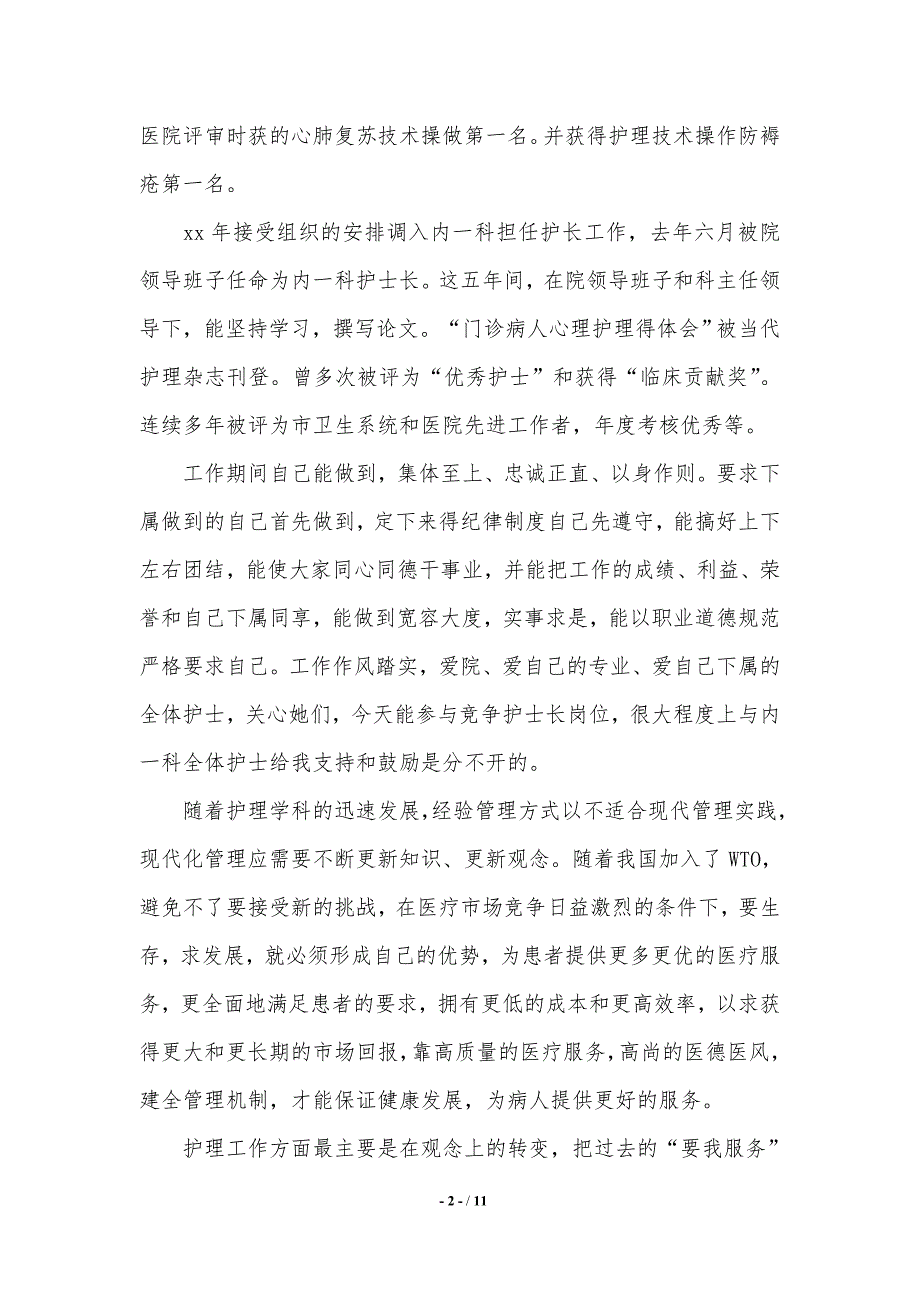 医院评审时获的心肺复苏技术操做第一名。并获得护理技术操作防褥
疮第一名。
xx 年接受组织的安排调入内一科担任护长工作，去年六月被院
领导班子任命为内一科护士长。这五年间，在院领导班子和科主任领
导下，能坚持学习，撰写论文。“门诊病人心理护理得体会”被当代
护理杂志刊登。曾多次被评为“优秀护士”和获得“临床贡献奖”。
连续多年被评为市卫生系统和医院先进工作者，年度考核优秀等。
工作期间自己能做到，集体至上、忠诚正直、以身作则。要求下
属做到的自己首先做到，定下来得纪律制度自己先遵守，能搞好上下
左右团结，能使大家同心同德干事业，并能把工作的成绩、利益、荣
誉和自己下属同享，能做到宽容大度，实事求是，能以职业道德规范
严格要求自己。工作作风踏实，爱院、爱自己的专业、爱自己下属的
全体护士，关心她们，今天能参与竞争护士长岗位，很大程度上与内
一科全体护士给我支持和鼓励是分不开的。
随着护理学科的迅速发展，经验管理方式以不适合现代管理实践，
现代化管理应需要不断更新知识、更新观念。随着我国加入了 WTO，
避免不了要接受新的挑战，在医疗市场竞争日益激烈的条件下，要生
存，求发展，就必须形成自己的优势，为患者提供更多更优的医疗服
务，更全面地满足患者的要求，拥有更低的成本和更高效率，以求获
得更大和更长期的市场回报，靠高质量的医疗服务，高尚的医德医风，
建全管理机制，才能保证健康发展，为病人提供更好的服务。
护理工作方面最主要是在观念上的转变，把过去的“要我服务”
- 2 - / 11